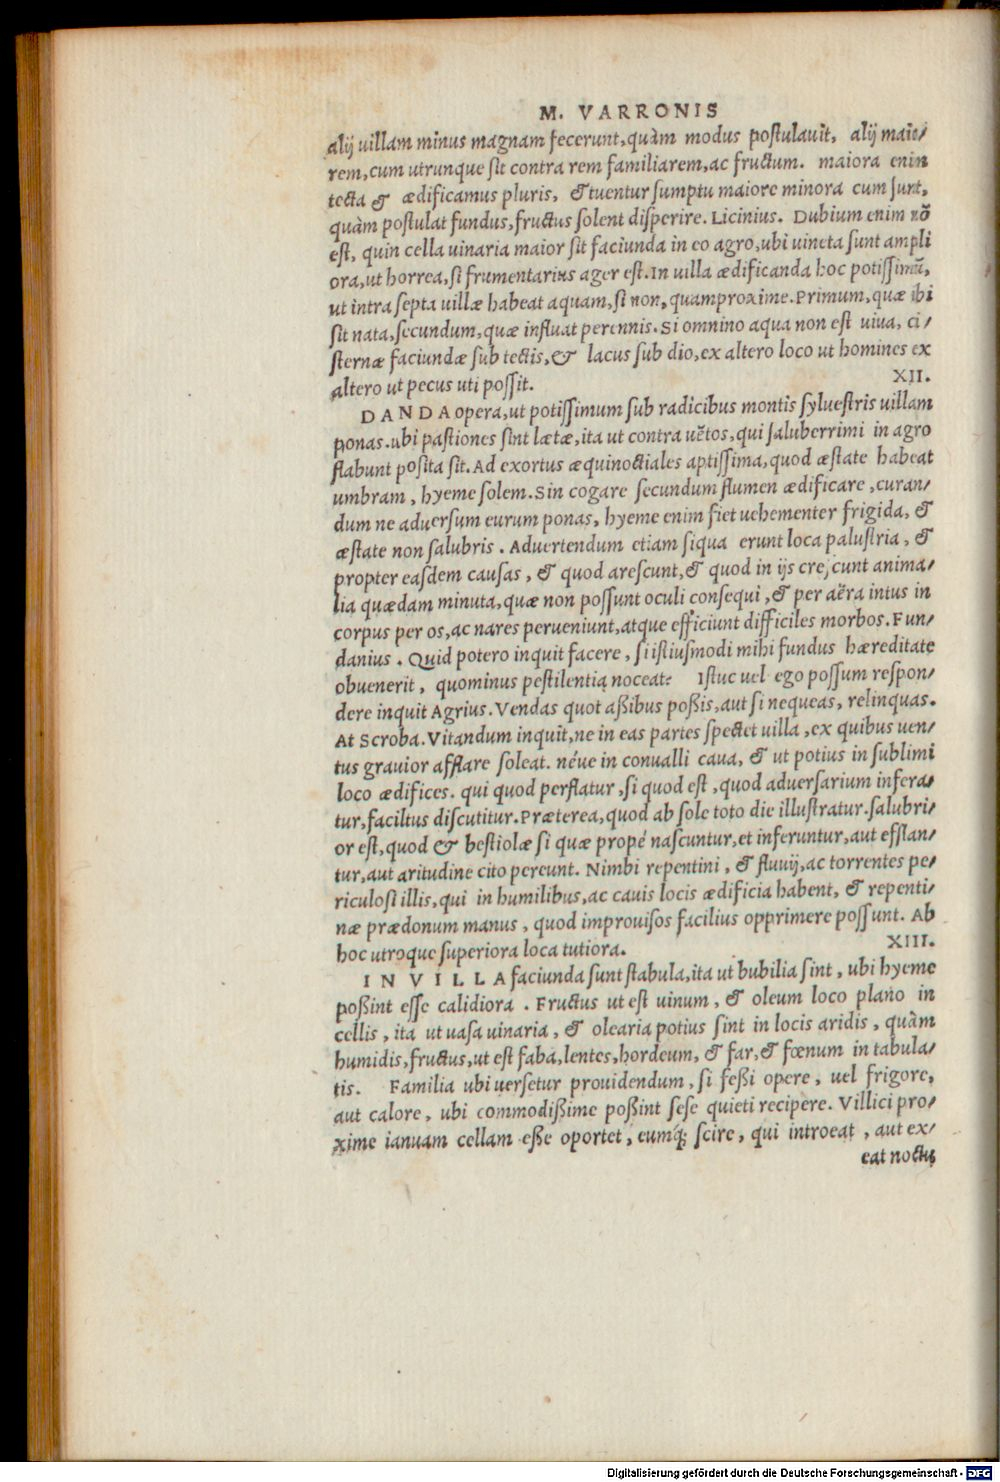 M. VARRONIS
alij uillam minus magnam fecerunt, quàm modus postulauit, alij maio/
rem, cum utrunque sit contra rem familiarem, ac fructum. maiora enim
tecta & ædificamus pluris, & tuentur sumptu maiore minora cum sunt,
quàm postulat fundus, fructus solent disperire. Licinius. Dubium enim nõ
est, quin cella uinaria maior sit faciunda in eo agro, ubi uineta sunt ampli
ora, ut horrea, si frumentarius ager est. In uilla ædificanda hoc potissimũ,
ut intra septa uillæ habeat aquam, si non, quamproxime. Primum, quæ ibi
sit nata, secundum, quæ influat perennis. Si omnino aqua non est uiua, ci/
sternæ faciundæ sub tectis, & lacus sub dio, ex altero loco ut homines ex
altero ut pecus uti possit. XII.
DANDA opera, ut potissimum sub radicibus montis syluestris uillam
ponas. ubi pastiones sint lætæ, ita ut contra uẽtos, qui saluberrimi in agro
flabunt posita sit. Ad exortus æquinoctiales aptissima, quod æstate habeat
umbram, hyeme solem. Sin cogare secundum flumen ædificare, curan/
dum ne aduersum eurum ponas, hyeme enim fiet uehementer frigida, &
æstate non salubris. Aduertendum etiam siqua erunt loca palustria, &
propter easdem causas, & quod arescunt, & quod in ijs crescunt anima/
lia quædam minuta, quæ non possunt oculi consequi, & per aëra intus in
corpus per os, ac nares perueniunt, atque efficiunt difficiles morbos. Fun/
danius. Quid potero inquit facere, si istiusmodi mihi fundus hæreditate
obuenerit, quominus pestilentia noceat? Istuc uel ego possum respon/
dere inquit Agrius. Vendas quot aßibus poßis, aut si nequeas, relinquas.
At Scroba. Vitandum inquit, ne in eas partes spectet uilla, ex quibus uen/
tus grauior afflare soleat. néue in conualli caua, & ut potius in sublimi
loco ædifices. qui quod perflatur, si quod est, quod aduersarium infera/
tur, facilius discutitur. Præterea, quod ab sole toto die illustratur. salubri/
or est, quod & bestiolæ si quæ propé nascuntur, et inferuntur, aut efflan/
tur, aut aritudine cito pereunt. Nimbi repentini, & fluuij, ac torrentes pe/
riculosi illis, qui in humilibus, ac cauis locis ædificia habent, & repenti/
næ prædonum manus, quod improuisos facilius opprimere possunt. Ab
hoc utroque superiora loca tutiora. XIII.
IN VILLA faciunda sunt stabula, ita ut bubilia sint, ubi hyeme
poßint esse calidiora. Fructus ut est uinum, & oleum loco plano in
cellis, ita ut uasa uinaria, & olearia potius sint in locis aridis, quàm
humidis, fructus, ut est faba, lentes, hordeum, & far, & fœnum in tabula/
tis. Familia ubi uersetur prouidendum, si feßi opere, uel frigore,
aut calore, ubi commodißime poßint sese quieti recipere. Villici pro/
xime ianuam cellam eße oportet, eumq́; scire, qui introeat, aut ex/
eat noctu
Digitalisierung gefördert durch die Deutsche Forschungsgemeinschaft - DFG